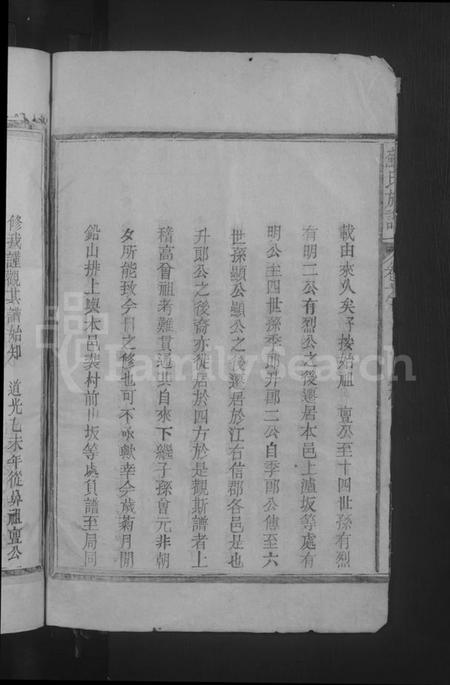 載由來久矣予按始祖 亶公至十四世孫有烈
有明二公有烈公之後遷居本邑上瀘坂等處有
明公至四世孫季郎升郎二公自季郎公傳至六
世孫顯公顯公之後遷居於江右信郡各邑是也
升郎公之後裔亦徙居於四方於是觀斯譜者上
稽高曾祖考難貫通其自來下繼子孫曾元非朝
夕所能致今日之修也可不永歟幸今歲菊月開
鉛山排上與本邑 村前 坂等處負譜至局同
修我謹觀其譜始知 道光乙未年從吳祖亶公
FamilySearch